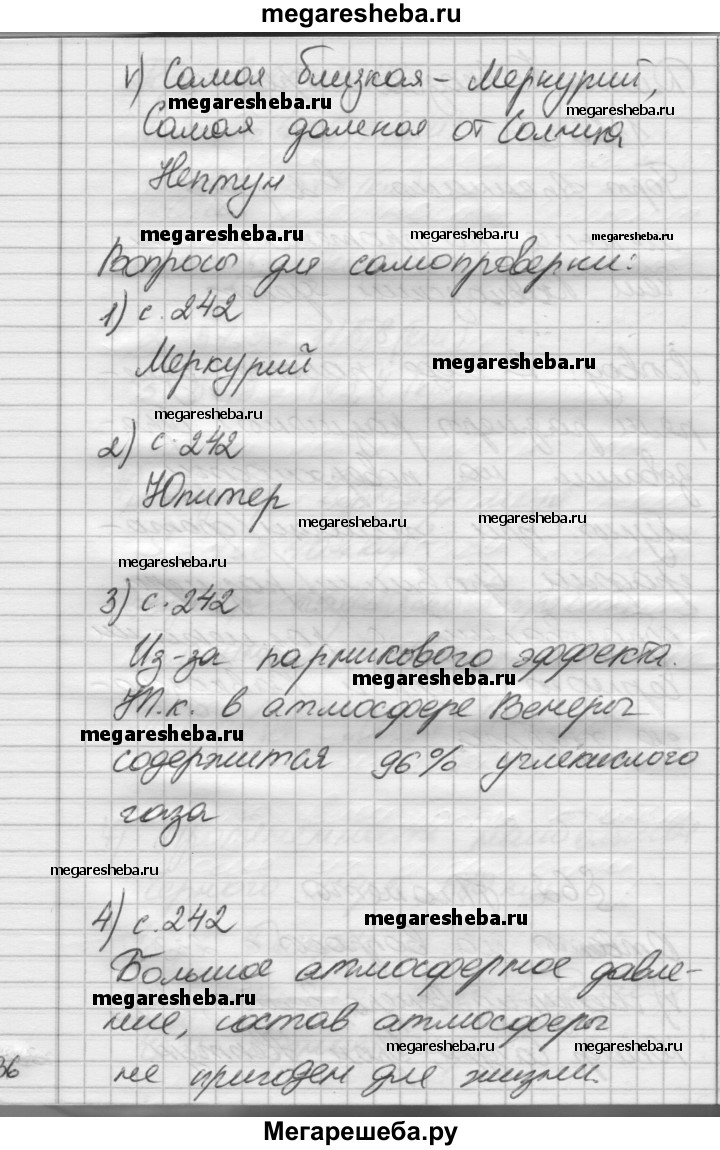 megaresheba.ru
г) Самая близкая – Меркурий,
megaresheba.ru
megaresheba.ru
Самая далекая от Солнца
Нептун
megaresheba.ru
megaresheba.ru
megaresheba.ru
Вопросы для самопроверки:
1) с. 242
Меркурий
megaresheba.ru
megaresheba.ru
2) с. 242
Юпитер
megaresheba.ru
megaresheba.ru
megaresheba.ru
3) с. 242
Из-за парникового эффекта.
megaresheba.ru
Т.к. в атмосфере Венеры
megaresheba.ru
содержится 96% углекислого
газа
megaresheba.ru
4) с. 242
megaresheba.ru
Большое атмосферное давле-
megaresheba.ru
ние, состав атмосферы
megaresheba.ru
megaresheba.ru
36
не пригоден для жизни.
Мегарешеба.ру